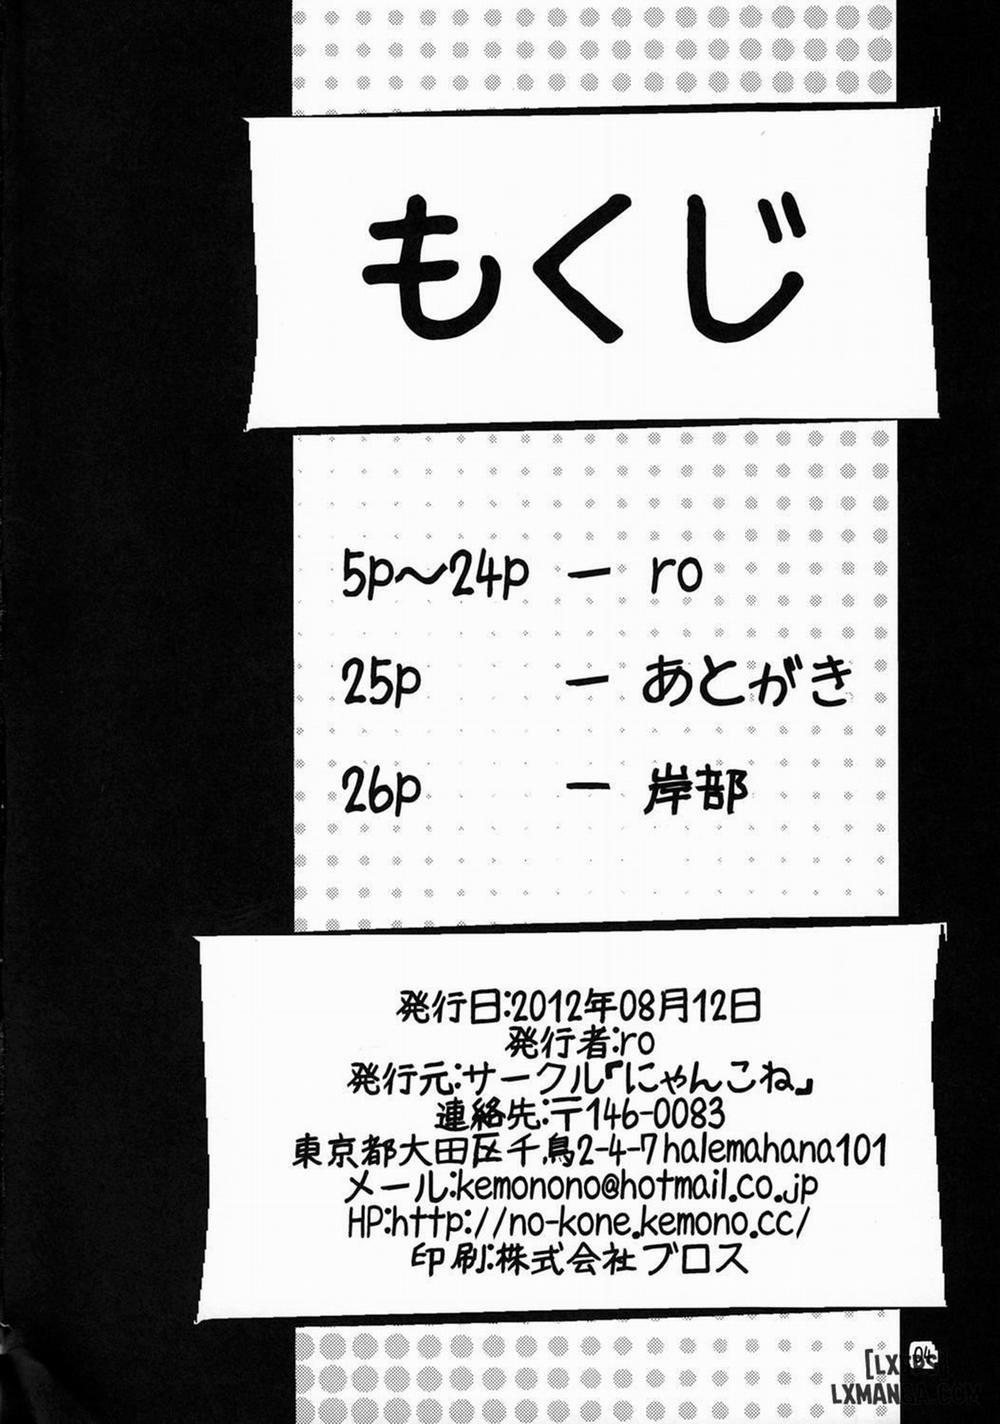 もくじ
5p～24p ー ro
25p ー あとがき
26p ー 岸部
発行日:2012年08月12日
発行者:ro
発行元:サークル『にゃんこね』
連絡先:〒146-0083
東京都大田区千鳥2-4-7halemahana101
メール:kemonono@hotmail.co.jp
HP:http://no-kone.kemono.cc/
印刷:株式会社ブロス
04
LXMANGA.COM